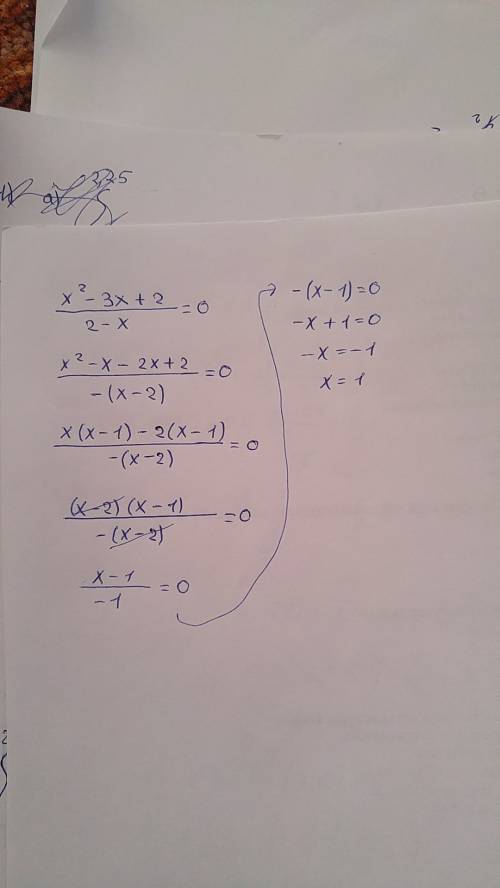 x² - 3x + 2 / 2 - x = 0
x² - x - 2x + 2 / -(x - 2) = 0
x(x - 1) - 2(x - 1) / -(x - 2) = 0
(x - 2)(x - 1) / -(x - 2) = 0
x - 1 / -1 = 0
-(x - 1) = 0
-x + 1 = 0
-x = -1
x = 1